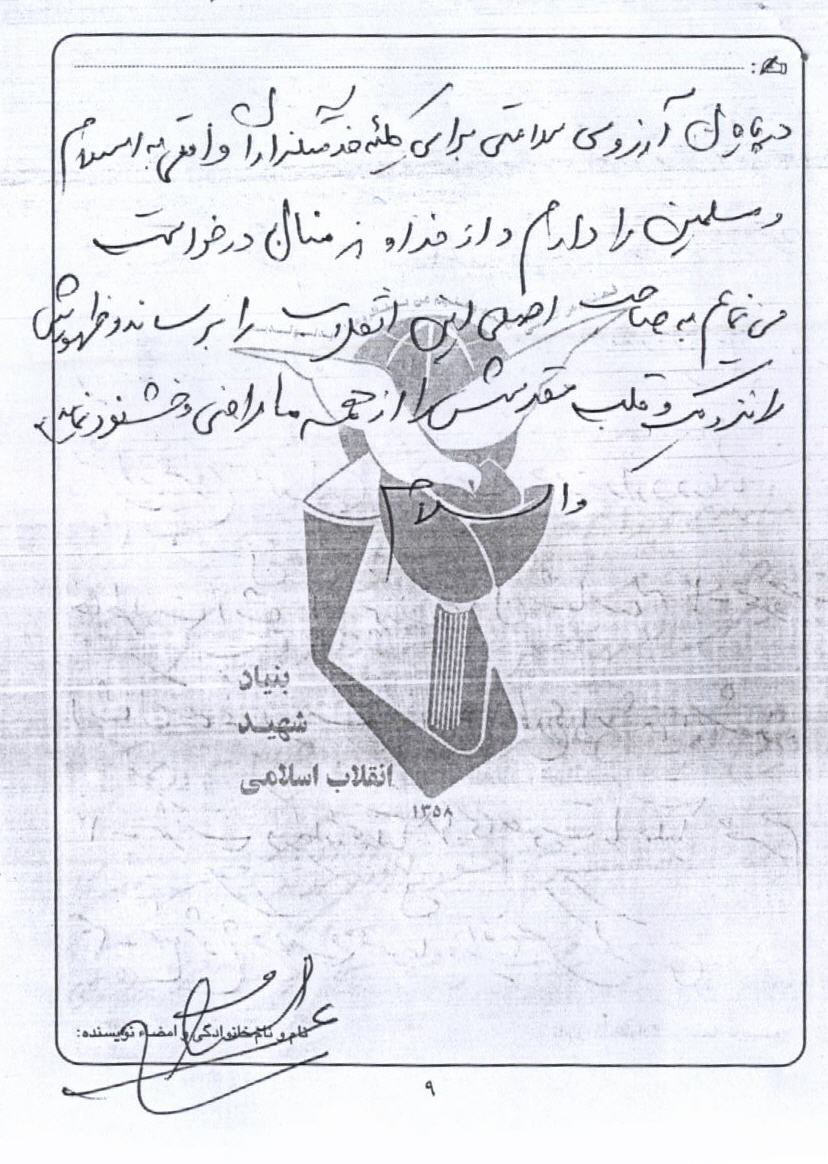 در پایان آرزوی سلامتی برای کلیه خدمتگزاران واقعی به اسلام
و مسلمین را دارم و از خداوند منان درخواست
می نمایم به صاحب اصلی این انقلاب را برساند و ظهورش
را نزدیک و قلب مقدسش را از همه ما راضی و خشنود نماید
والسلام
بنیاد
شهید
انقلاب اسلامی
۱۳۵۸
نام و نام خانوادگی و امضاء نویسنده:
۹